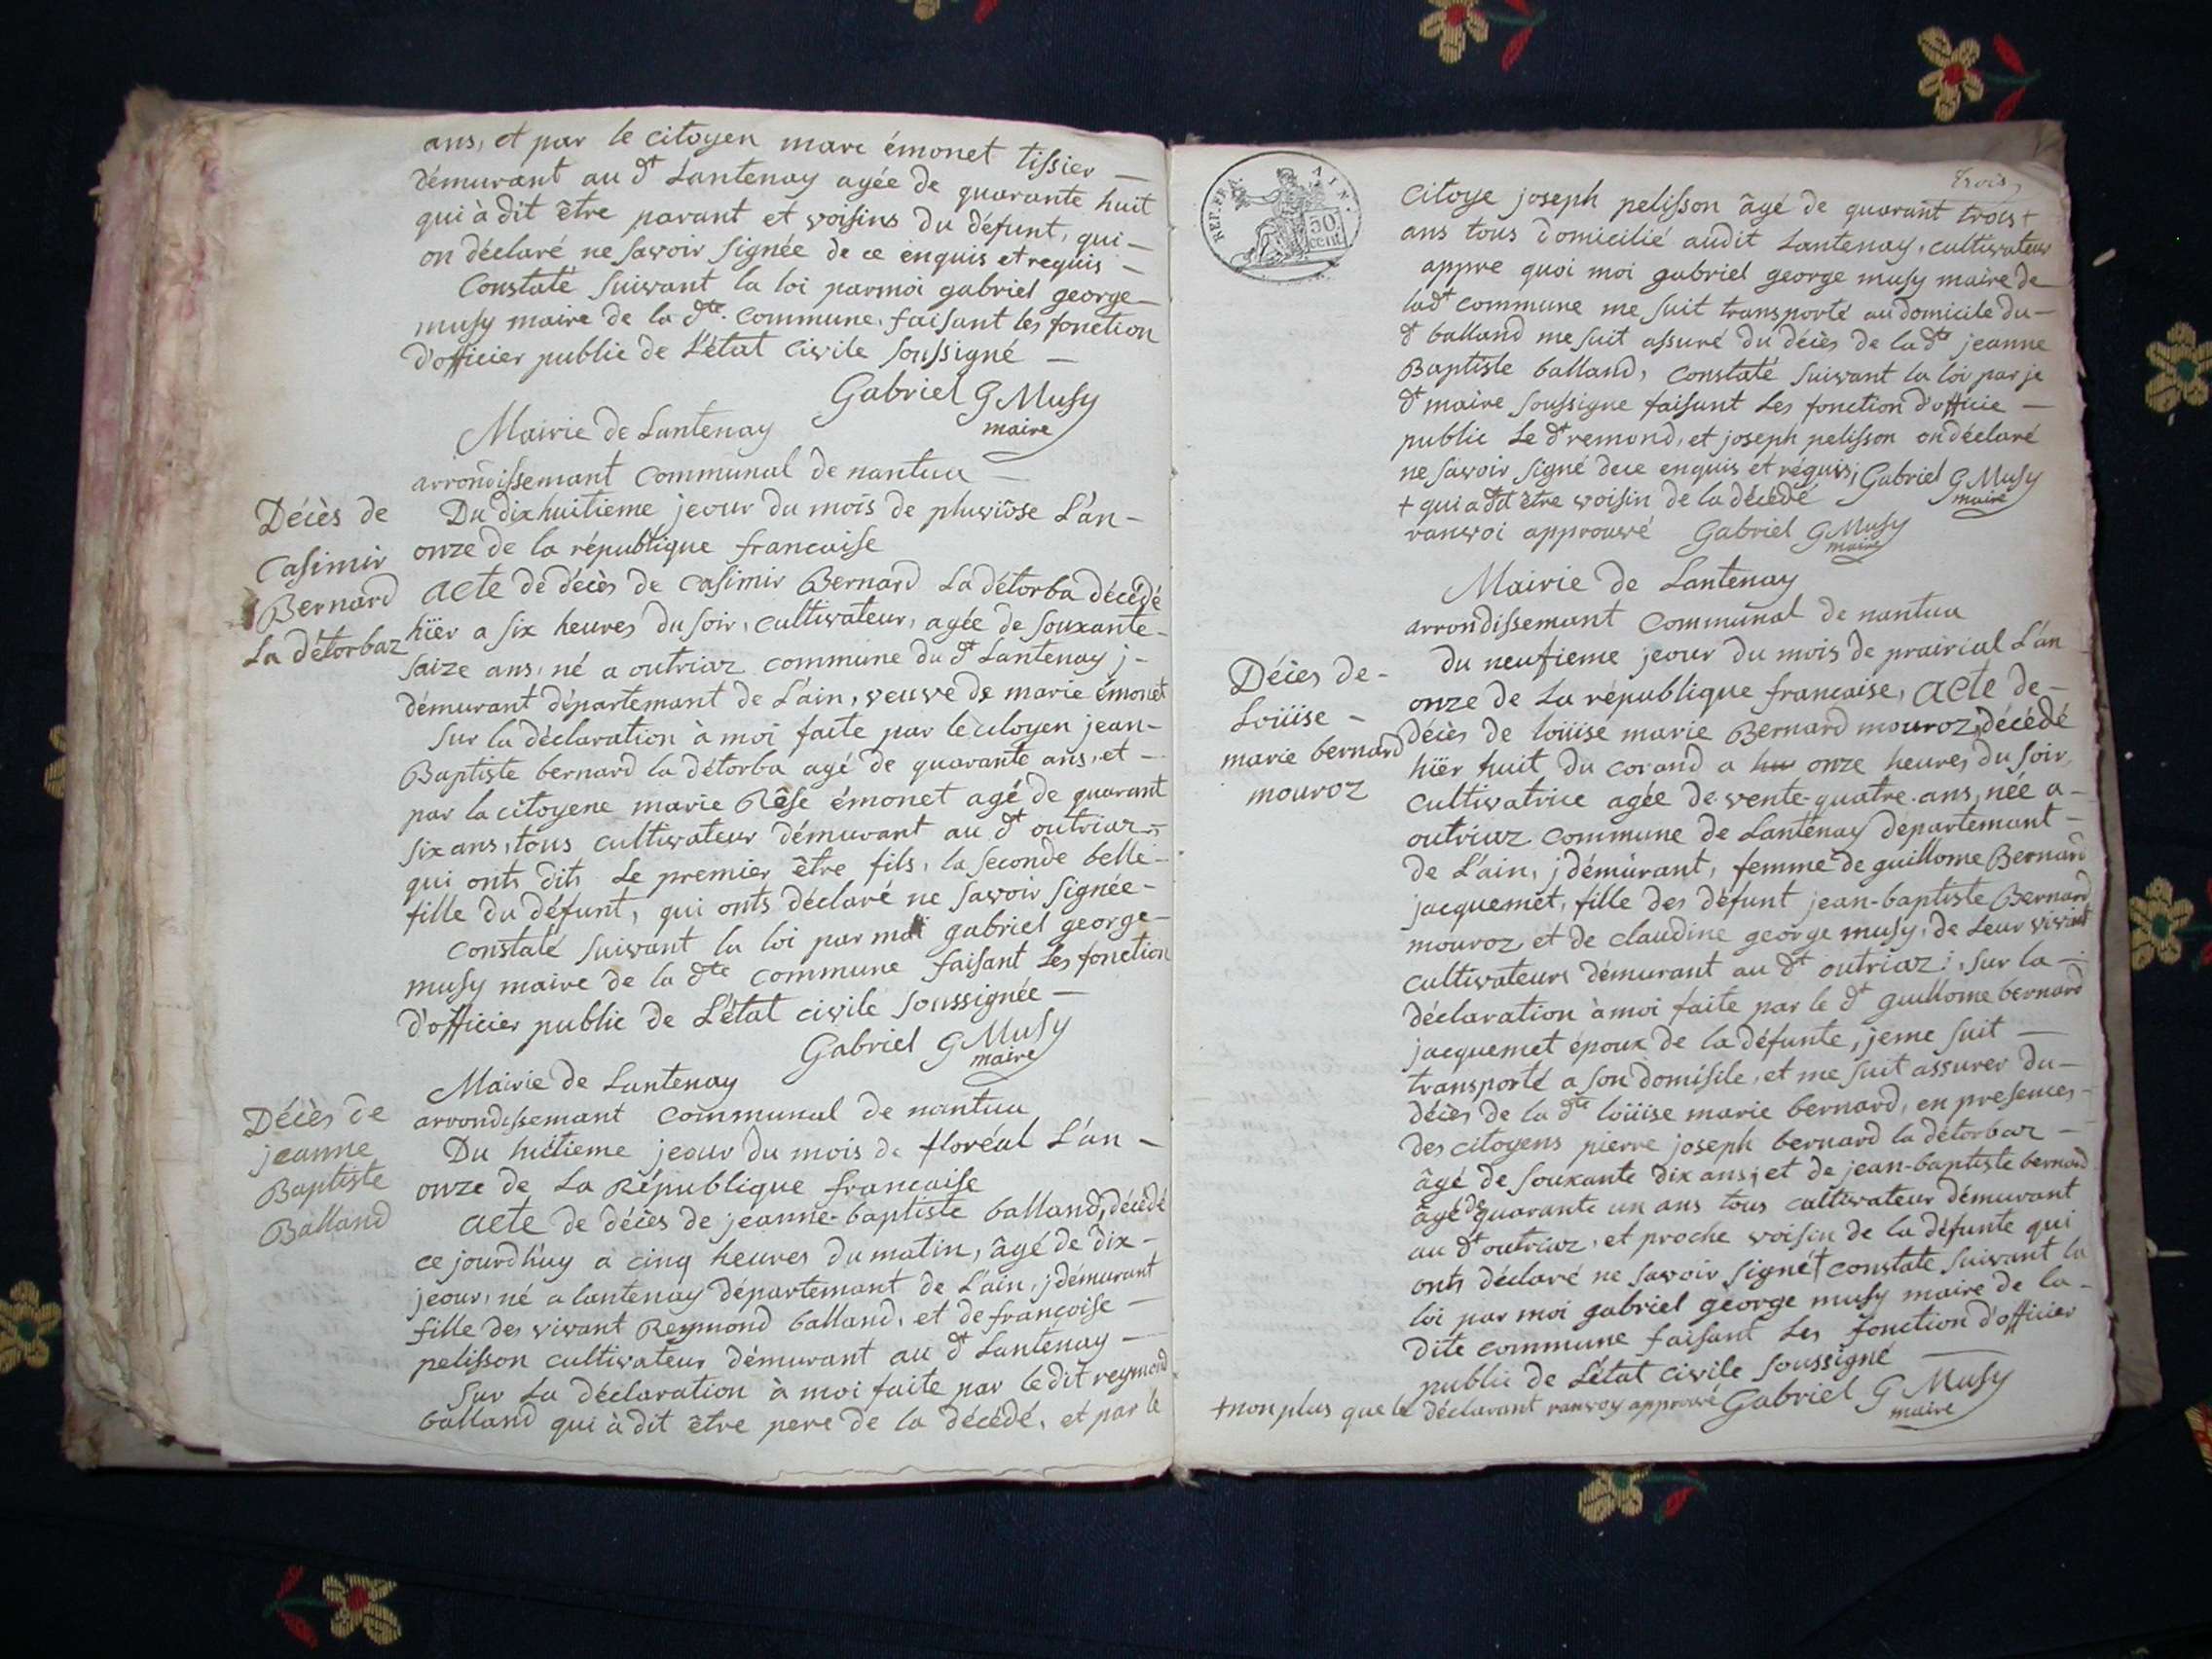 ans, et par le citoyen marc émonet tissier —
démurant au dt Lantenay agée de quarante huit
qui à dit être parant et voisins du défunt, qui —
on déclaré ne savoir signée de ce enquis et requis —
Constaté suivant la loi par moi gabriel george
musy maire de la dte. commune, faisant les fonction
d'officier public de L'état civile soussigné —
Gabriel G Musy
maire
Mairie de Lantenay
arrondissemant communal de nantua —
Décès de
Casimir
Bernard
La détorbaz
Du dix huitieme jeour du mois de pluviôse L'an -
onze de la république francaise
acte de décès de casimir Bernard La détorba décédé
hïer a six heures du soir, cultivateur, agée de souxante -
saize ans, né a outriaz commune du dt Lantenay j -
démurant départemant de L'ain, veuve de marie émonet
Sur la déclaration à moi faite par le citoyen jean -
Baptiste bernard la détorba agé de quarante ans, et -
par la citoyene marie Rêse émonet agé de quarant
six ans, tous cultivateur démurant au dt outriaz -
qui onts dits Le premier être fils, la seconde belle -
fille du défunt, qui onts déclaré ne savoir signée -
Constaté suivant la loi par moi gabriel george -
musy maire de la dte commune faisant Les fonction
d'officier public de L'état civile soussignée —
Gabriel G Musy
maire
Mairie de Lantenay
arrondissemant communal de nantua
Décès de
jeanne
Baptiste
Balland
Du huitieme jeour du mois de floréal L'an -
onze de La République francaise
acte de décès de jeanne-baptiste balland, décédé
ce jourd'huy a cinq heures du matin, âgé de dix -
jeour, né a lantenay départemant de L'ain, j démurant
fille des vivant Reymond balland, et de françoise —
pelisson cultivateur démurant au dt Lantenay —
Sur La déclaration à moi faite par le dit reymond
balland qui à dit être pere de la décédé, et par le
REP. FRA. AIN.
50 cent.
trois,
Citoye joseph pelisson âgé de quarant trois +
ans tous domicilié audit Lantenay, cultivateur
appre quoi moi gabriel george musy maire de
ladt commune me suit transporté au domicile du -
dt balland me suit assuré du décès de la dte jeanne
Baptiste balland, constaté suivant la loi par je
dt maire soussigne faisant Les fonction d'officie —
public Le dt remond, et joseph pelisson on déclaré
ne savoir signé de ce enquis et réquis, Gabriel G Musy
maire
+ qui a dit être voisin de la décédé
ranvoi approuvé Gabriel G Musy
maire
Mairie de Lantenay
arrondissemant communal de nantua
Décès de -
Loüise -
marie bernard
mouroz
du neufieme jeour du mois de prairial L'an
onze de La république francaise, acte de -
décès de loüise marie Bernard mouroz, décédé
hïer huit du corand a onze heures du soir,
cultivatrice agée de vente-quatre ans, née a -
outriaz commune de Lantenay départemant -
de L'ain, j démurant, femme de guillome Bernard
jacquemet, fille des défunt jean-baptiste Bernard
mouroz et de claudine george musy, de Leur vivant
cultivateurs démurant au dt outriaz; sur la -
déclaration à moi faite par le dt guillome bernard
jacquemet époux de la défunte, je me suit —
transporté a son domisile, et me suit assurer du -
décès de la dte loüise marie bernard, en presences -
des citoyens pierre joseph bernard la détorbaz —
âgé de souxante dix ans, et de jean-baptiste bernard
âgé de quarante un ans tous cultivateur démurant
au dt outriaz, et proche voisin de la défunte qui
onts déclaré ne savoir signé + constate suivant la
loi par moi gabriel george musy maire de la -
dite commune faisant Les fonction d'officier
public de L'état civile soussigné —
+ non plus que le déclarant ranvoy approuvé Gabriel G Musy
maire